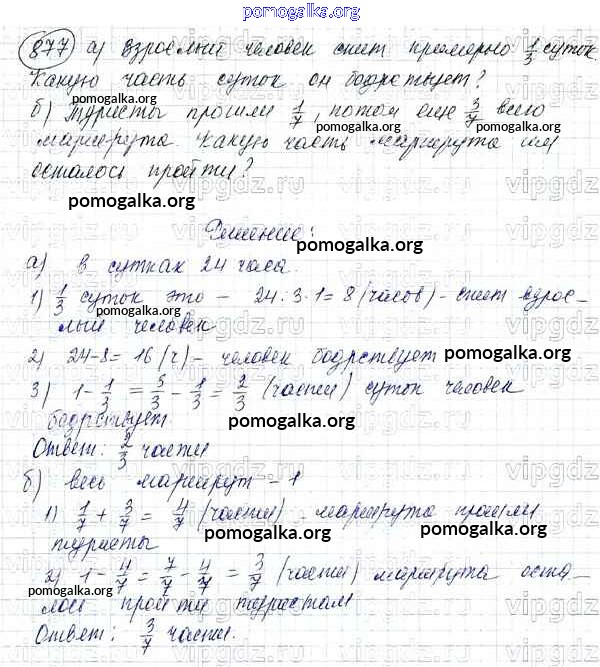 pomogalka.org
877 а) Взрослый человек спит примерно 1/3 суток.
Какую часть суток он бодрствует?
pomogalka.org
б) Туристы прошли 1/7, потом еще 3/7 всего
pomogalka.org
маршрута. Какую часть маршрута им
осталось пройти?
pomogalka.org
Решение:
pomogalka.org
а) В сутках 24 часа.
1) 1/3 суток это – 24 : 3 · 1 = 8 (часов) – спит взрос-
pomogalka.org
лый человек
2) 24-8 = 16 (ч) – человек бодрствует
pomogalka.org
3) 1 - 1/3 = 3/3 - 1/3 = 2/3 (части) суток человек
бодрствует.
pomogalka.org
Ответ: 2/3 части
б) весь маршрут – 1
1) 1/7 + 3/7 = 4/7 (части) – маршрута прошли
pomogalka.org
туристы
2) 1 - 4/7 = 7/7 - 4/7 = 3/7 (части) маршрута оста-
pomogalka.org
лось пройти туристам
Ответ: 3/7 части.
vipgdz.ru